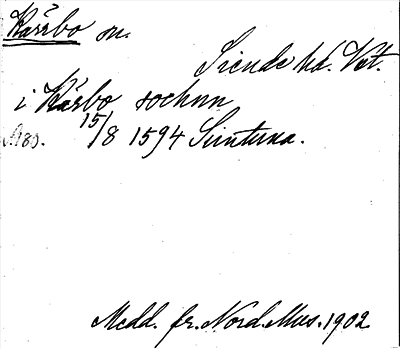 Kärrbo sn.
Siende hd. Vst.
i Kärbo sochnn
15/8 1594 Simtuna.
Medd. fr. Nord. Mus. 1902